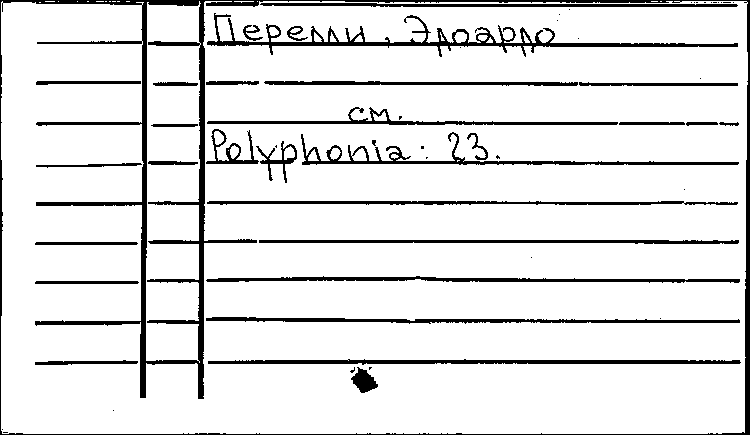 Перелли, Эдоардо
см.
Polyphonia: 23.